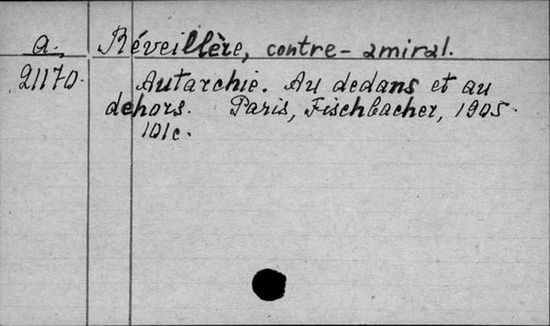 a. Réveillère, contre-amiral.
21170. Autarchie. Au dedans et au
dehors. Paris, Fischbacher, 1905.
101c.